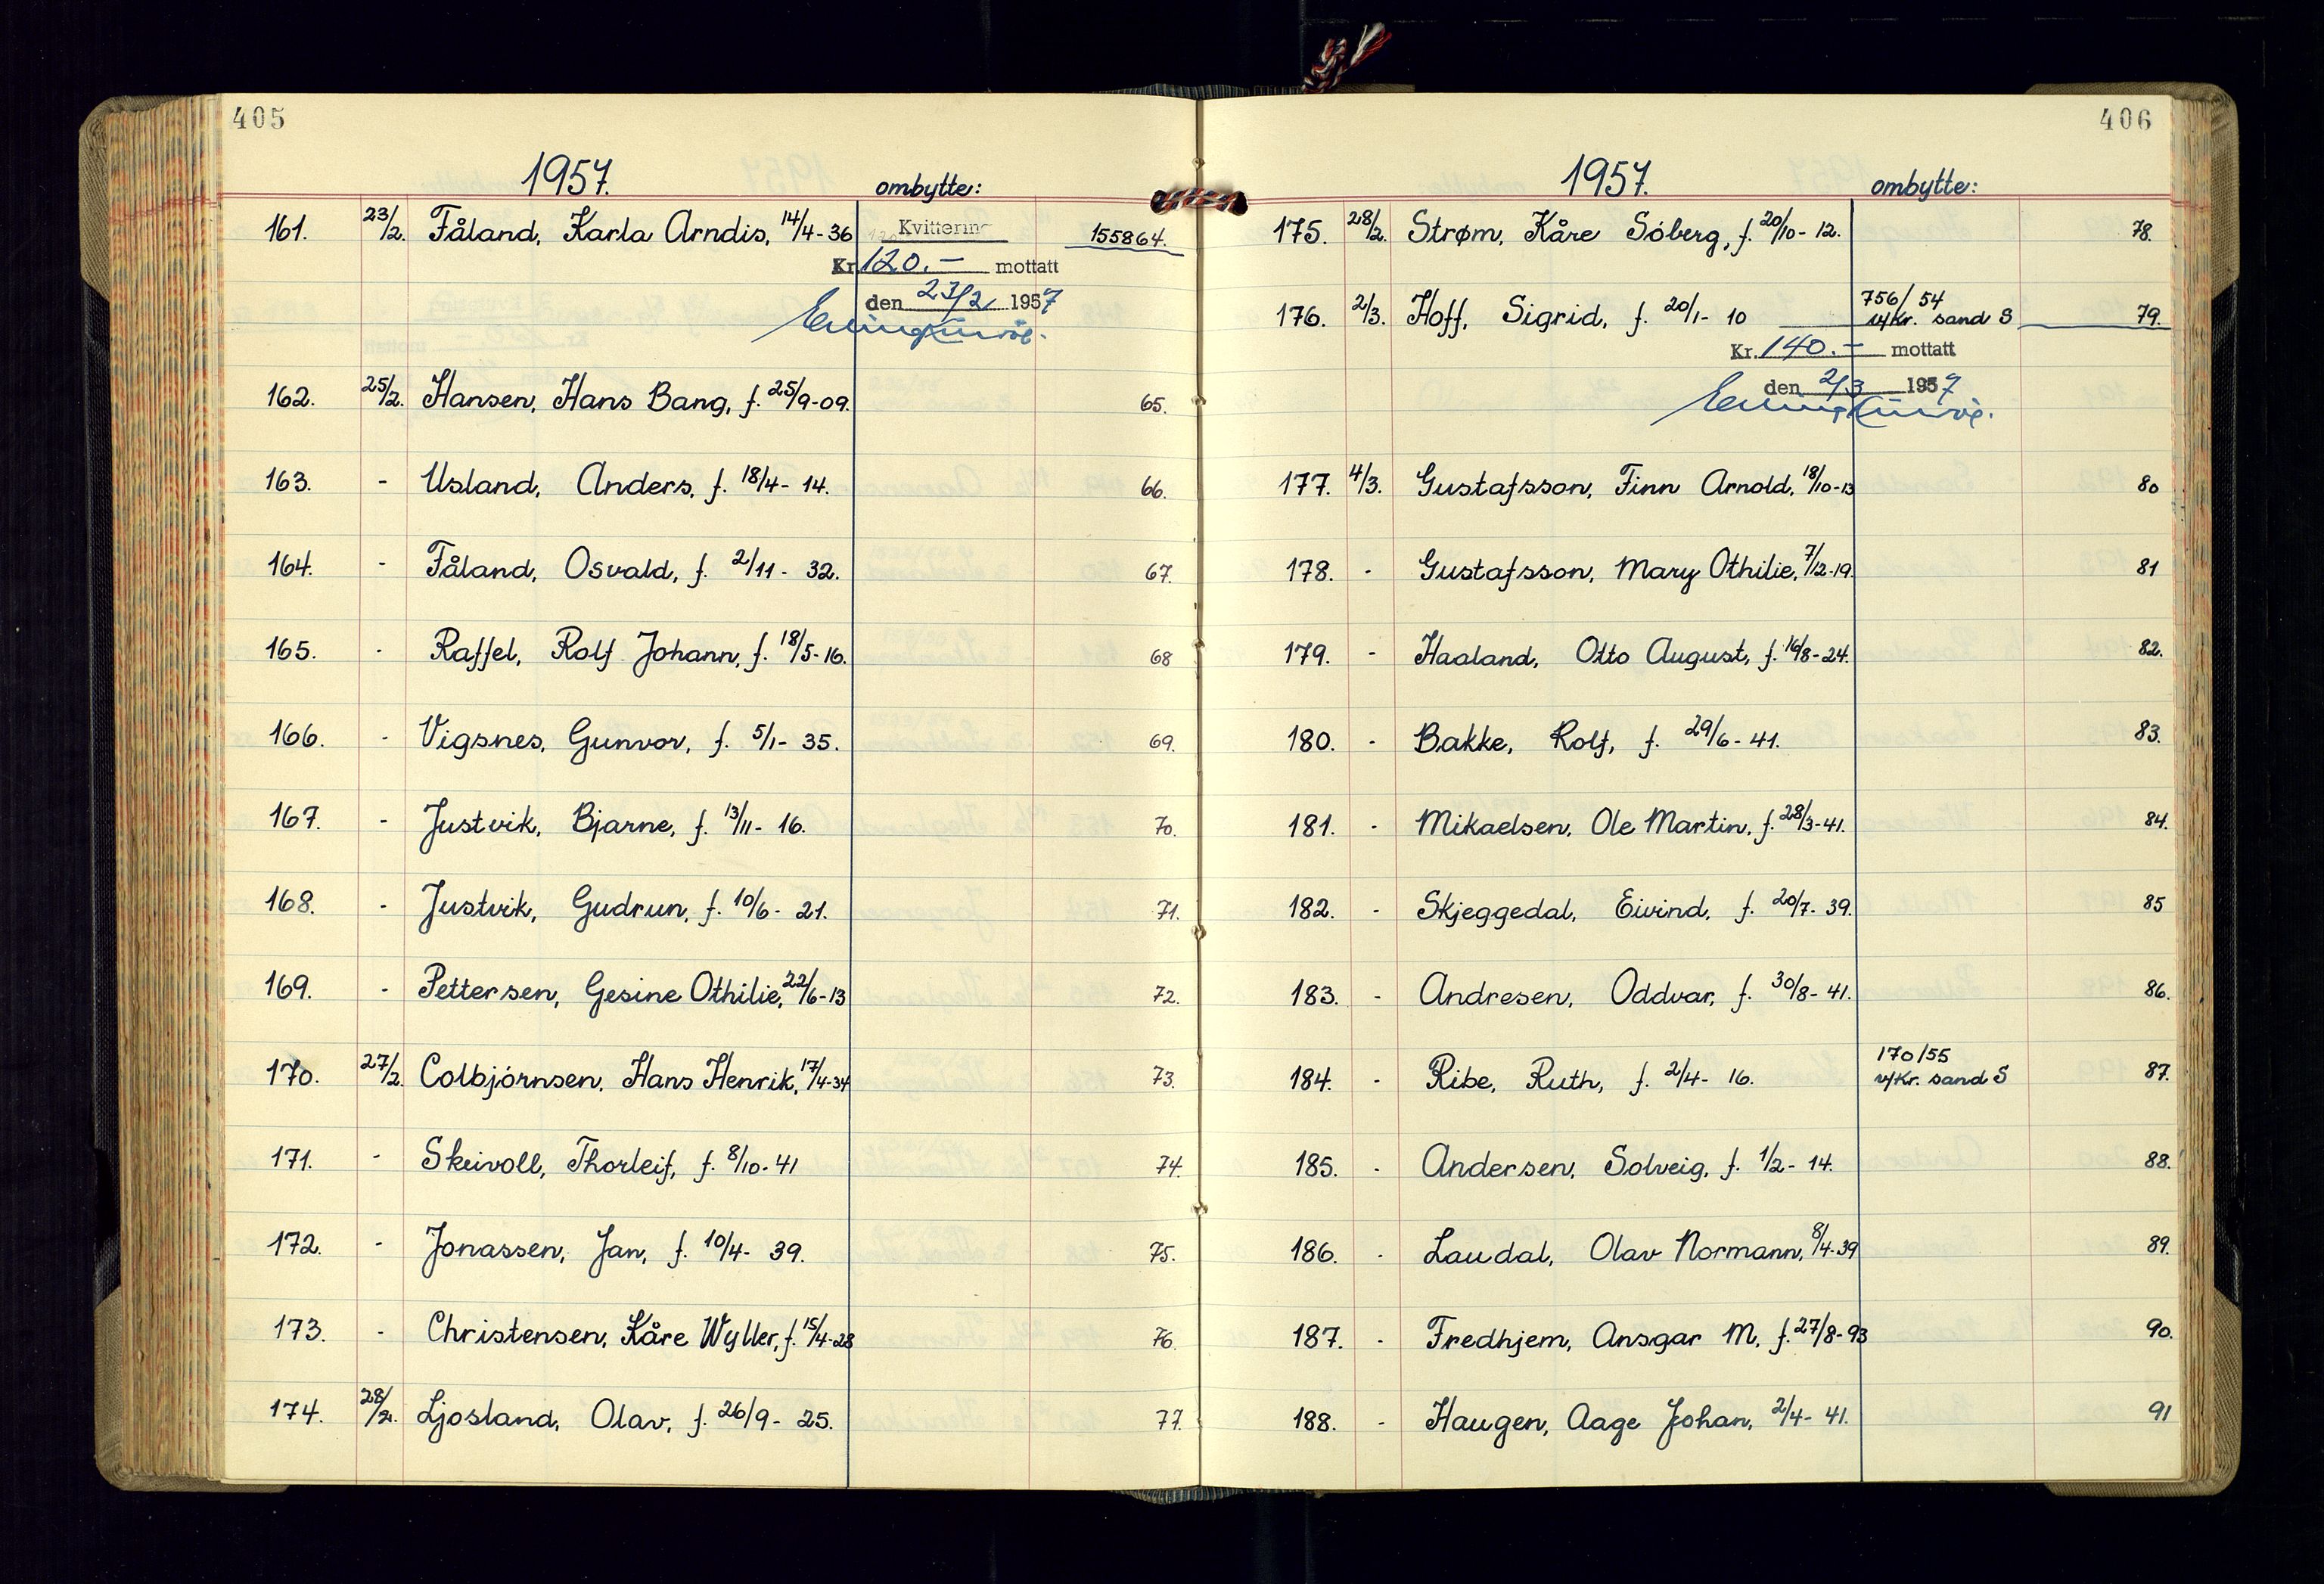 405
1957.
ombytte:
161. 23/2. Fåland, Karla Arndis, 14/4-36 Kvittering 155864.
Kr. 120.- mottatt
den 23/2 1957
162. 25/2. Hansen, Hans Bang, f. 25/9-09. 65.
163. - Usland, Anders, f. 18/4- 14. 66.
164. - Fåland, Osvald, f. 2/11- 32. 67.
165. - Raffel, Rolf Johann, f. 18/5-16. 68
166. - Vigsnes, Gunvor, f. 5/1- 35. 69.
167. - Justvik, Bjarne, f. 13/11- 16. 70.
168. - Justvik, Gudrun, f. 10/6- 21. 71.
169. - Pettersen, Gesine Othilie, 22/6-13 72.
170. 27/2. Colbjörnsen, Hans Henrik, 17/4-34 73.
171. - Skeivoll, Thorleif, f. 8/10-41 74.
172. - Jonassen, Jan, f. 10/4- 39. 75.
173. - Christensen, Kåre Wyller, f. 15/4-28 76.
174. 28/2. Ljosland, Olav, f. 26/9- 25. 77.
406
1957.
ombytte:
175. 28/2. Strøm, Kåre Söberg, f. 20/10- 12. 78.
176. 2/3. Hoff, Sigrid, f. 20/1- 10 756/54 79.
v/Kr. sand S
Kr. 140.- mottatt
den 2/3 1957
177. 4/3. Gustafsson, Finn Arnold, 18/10-13 80
178. - Gustafsson, Mary Othilie, 7/12-19. 81
179. - Haaland, Otto August, f. 16/8-24. 82.
180. - Bakke, Rolf, f. 29/6-41. 83.
181. - Mikaelsen, Ole Martin, f. 28/3-41. 84.
182. - Skjeggedal, Eivind, f. 20/7-39. 85
183. - Andresen, Oddvar, f. 30/8-41. 86.
184. - Ribe, Ruth, f. 2/4- 16. 170/55 87.
v/Kr. sand S
185. - Andersen, Solveig, f. 1/2- 14. 88.
186. - Laudal, Olav Normann, 8/4-39 89.
187. - Fredhjem, Ansgar M, f. 27/8-93 90.
188. - Haugen, Aage Johan, 2/4- 41. 91